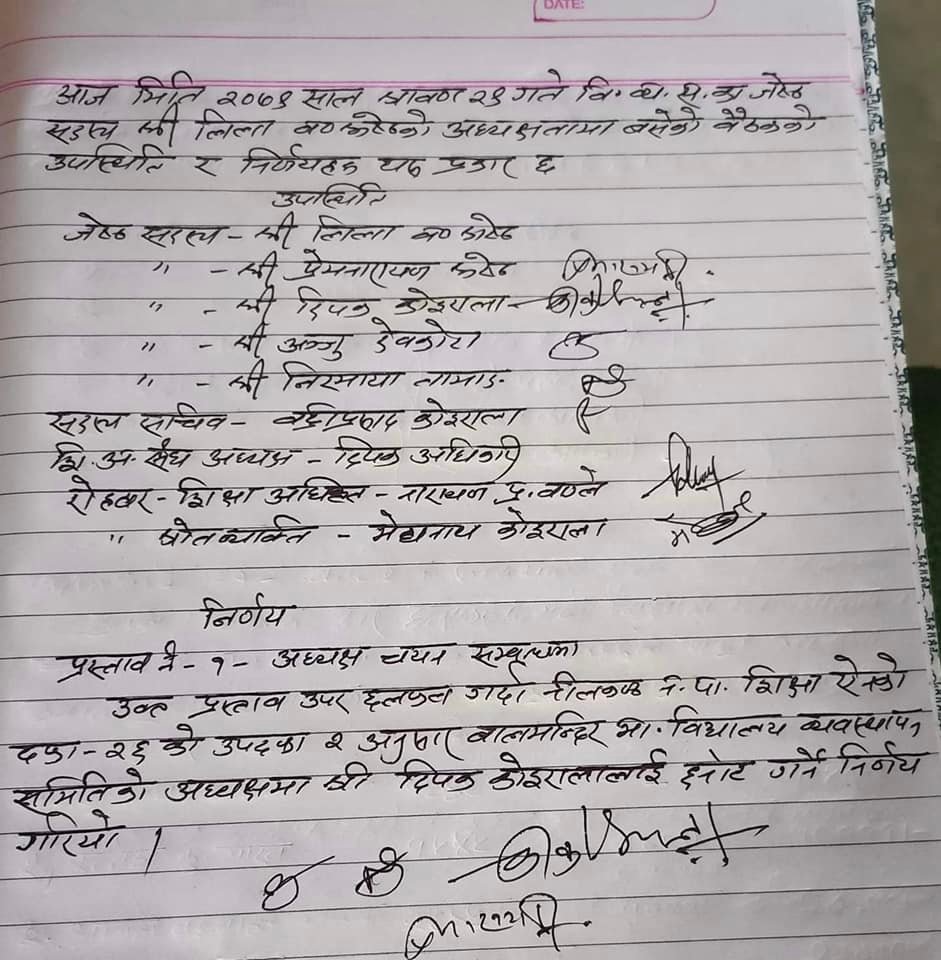 DATE:
आज मिति २०७९ साल श्रावण २९ गते वि. व्य. स. का जेष्ठ
सदस्य श्री लिला बण्डकोष्ठको अध्यक्षतामा बसेको बैठकको
उपस्थिति र निर्णयहरू यस प्रकार छ
उपस्थिति
जेष्ठ सदस्य - श्री लिला
" - श्री प्रेमनारायण
" - श्री दिपक कोइराला
" - श्री अञ्जु देवकोटा
" - श्री निरमाया तामाङ
सदस्य सचिव - बद्रीप्रसाद कोइराला
शि. अ. संघ अध्यक्ष - दिपक अधिकारी
रोहबर - शिक्षा अधिकृत - नारायण प्र. वाग्ले
" श्रोतव्यक्ति - मेघनाथ कोइराला
निर्णय
प्रस्ताव नं - १ - अध्यक्ष चयन सम्बन्धमा
उक्त प्रस्ताव उपर छलफल गर्दा नीलकण्ठ न. पा. शिक्षा ऐनको
दफा - २६ को उपदफा २ अनुसार बालमन्दिर मा. विद्यालय व्यवस्थापन
समितिको अध्यक्षमा श्री दिपक कोइरालालाई छनोट गर्ने निर्णय
गरियो ।